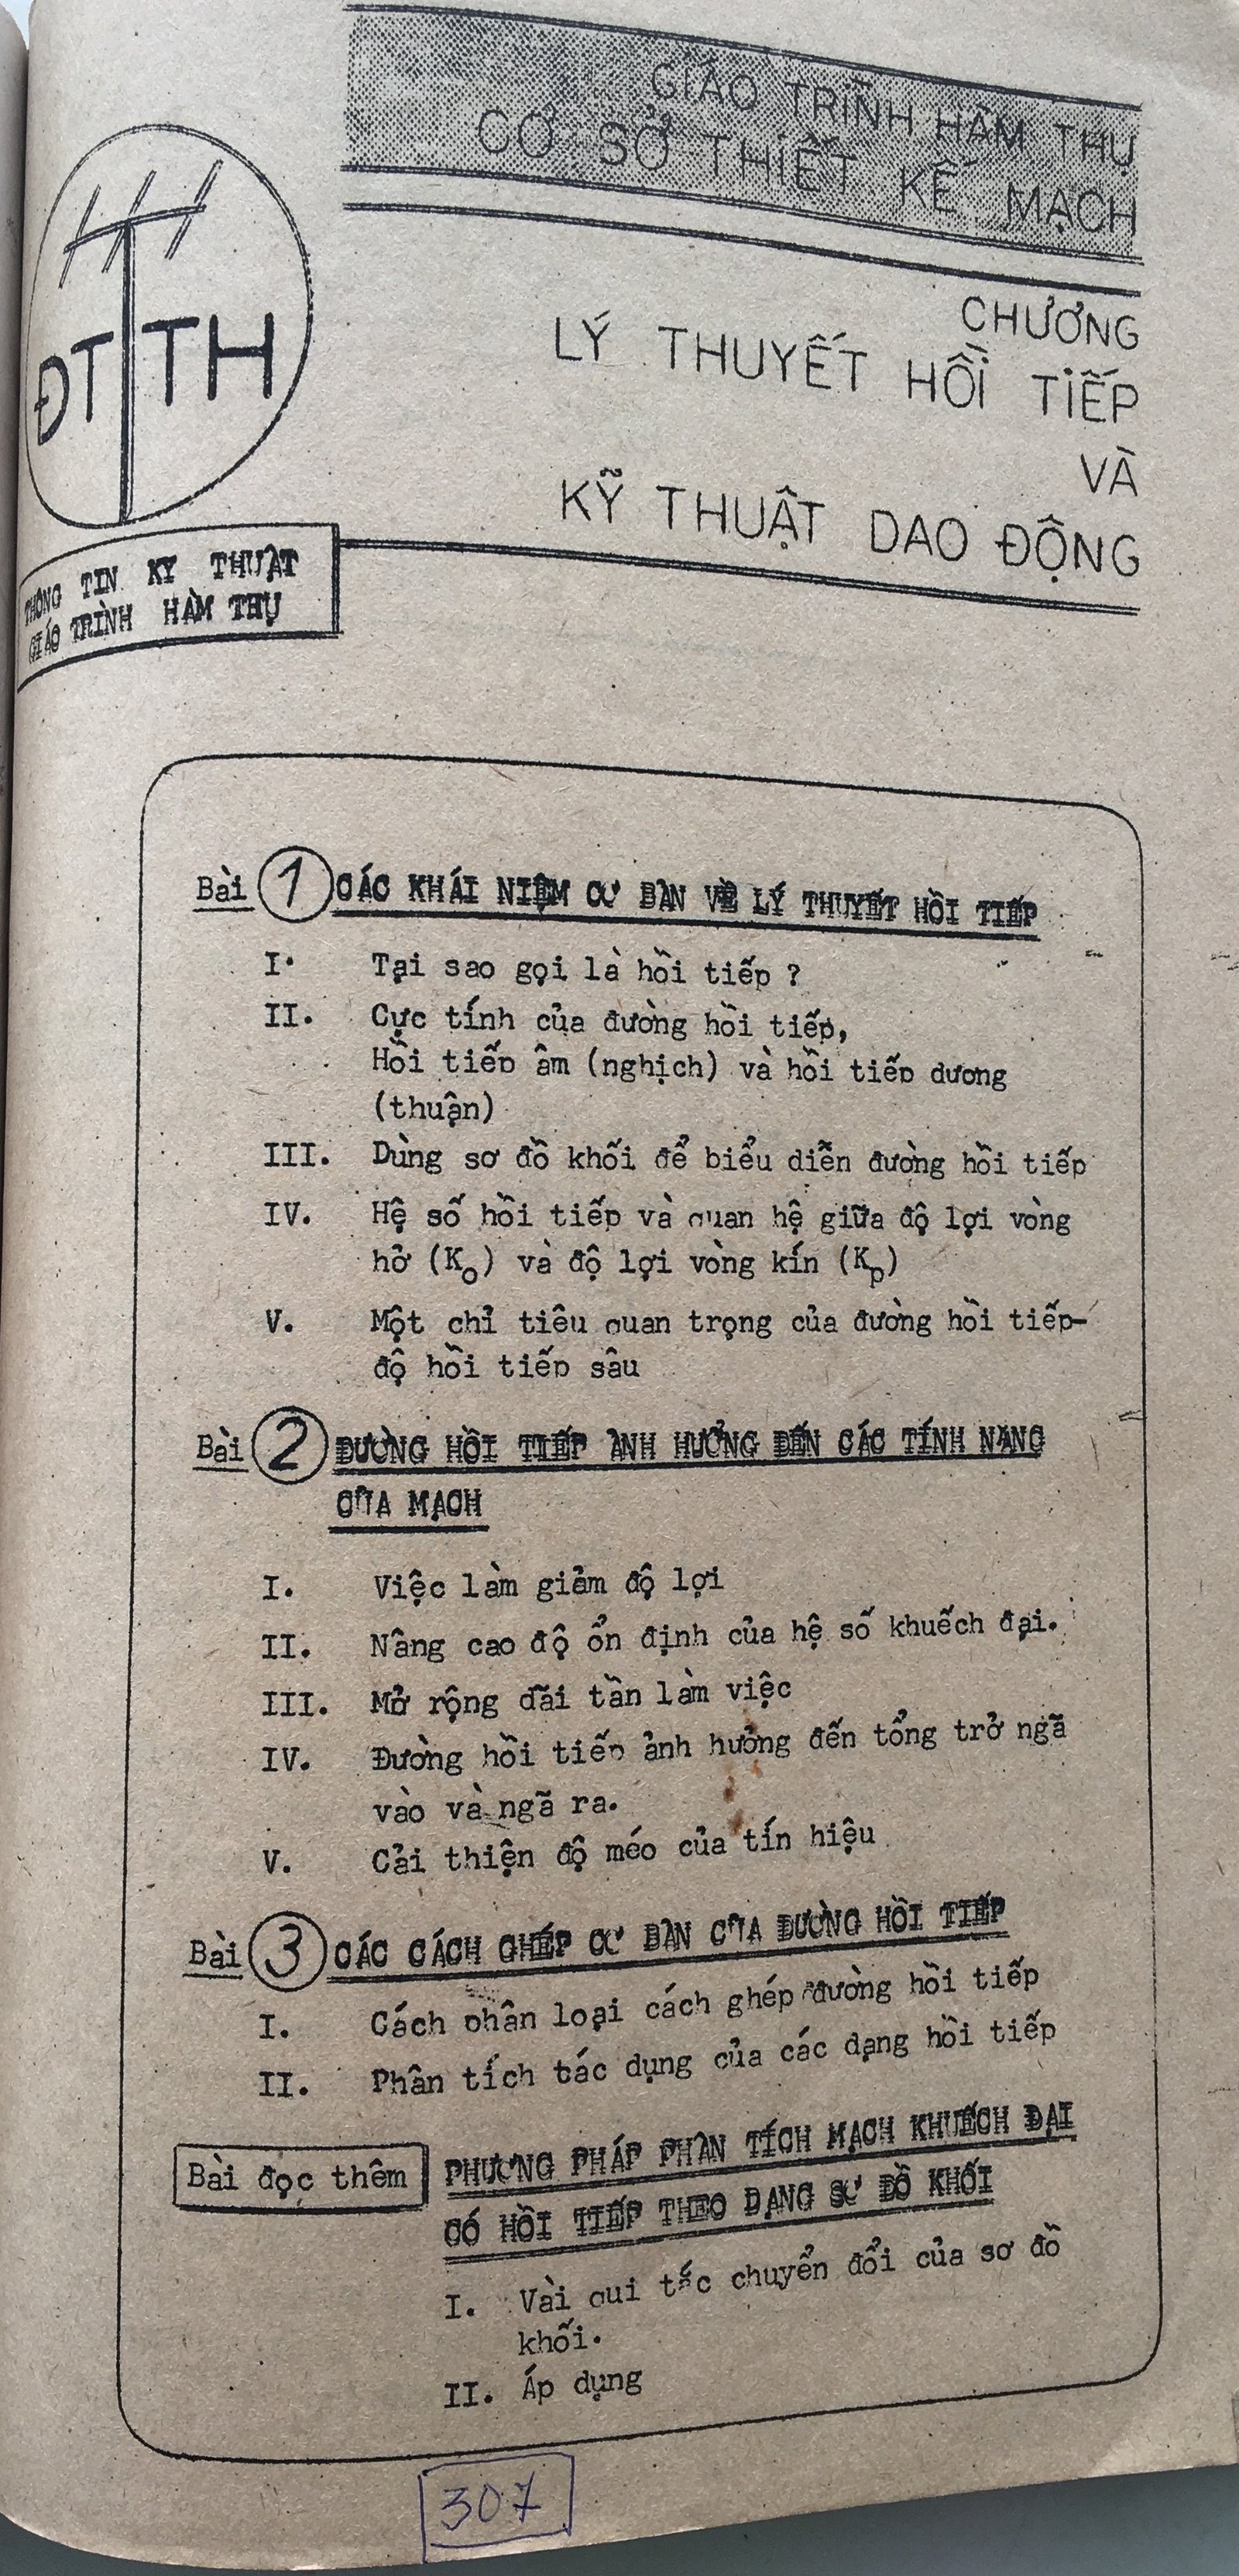 GIÁO TRÌNH HÀM THỤ
CƠ SỞ THIẾT KẾ MẠCH
ĐTTH
CHƯƠNG
LÝ THUYẾT HỒI TIẾP
VÀ
KỸ THUẬT DAO ĐỘNG
THÔNG TIN KỸ THUẬT
GIÁO TRÌNH HÀM THỤ
Bài 1 CÁC KHÁI NIỆM CƠ BẢN VỀ LÝ THUYẾT HỒI TIẾP
I. Tại sao gọi là hồi tiếp ?
II. Cực tính của đường hồi tiếp,
Hồi tiếp âm (nghịch) và hồi tiếp dương
(thuận)
III. Dùng sơ đồ khối để biểu diễn đường hồi tiếp
IV. Hệ số hồi tiếp và quan hệ giữa độ lợi vòng
hở (Ko) và độ lợi vòng kín (Kp)
V. Một chỉ tiêu quan trọng của đường hồi tiếp-
độ hồi tiếp sâu
Bài 2 ĐƯỜNG HỒI TIẾP ẢNH HƯỞNG ĐẾN CÁC TÍNH NĂNG
CỦA MẠCH
I. Việc làm giảm độ lợi
II. Nâng cao độ ổn định của hệ số khuếch đại.
III. Mở rộng dãi tần làm việc
IV. Đường hồi tiếp ảnh hưởng đến tổng trở ngã
vào và ngã ra.
V. Cải thiện độ méo của tín hiệu
Bài 3 CÁC CÁCH GHÉP CƠ BẢN CỦA ĐƯỜNG HỒI TIẾP
I. Cách phân loại cách ghép đường hồi tiếp
II. Phân tích tác dụng của các dạng hồi tiếp
Bài đọc thêm PHƯƠNG PHÁP PHÂN TÍCH MẠCH KHUẾCH ĐẠI
CÓ HỒI TIẾP THEO DẠNG SƠ ĐỒ KHỐI
I. Vài qui tắc chuyển đổi của sơ đồ
khối.
II. Áp dụng
307